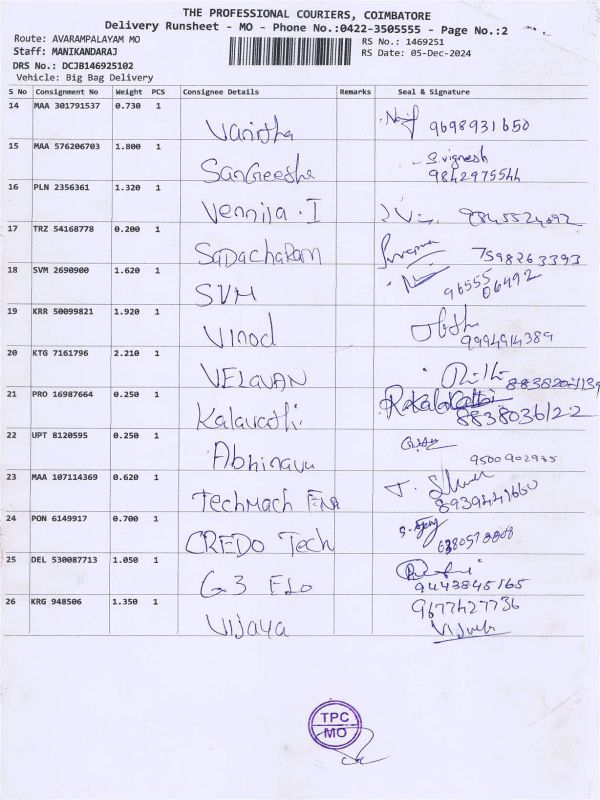 THE PROFESSIONAL COURIERS, COIMBATORE
Delivery Runsheet - MO - Phone No.:0422-3505555 - Page No.:2
Route: AVARAMPALAYAM MO
RS No.: 1469251
Staff: MANIKANDARAJ
RS Date: 05-Dec-2024
DRS No.: DCJB146925102
Vehicle: Big Bag Delivery
S No Consignment No Weight PCS Consignee Details Remarks Seal & Signature
14 MAA 301791537 0.730 1
Vanitha 9698931650
15 MAA 576206703 1.800 1
Sangeetha S vignesh
9842975544
16 PLN 2356361 1.320 1
Vennila . I
17 TRZ 54168778 0.200 1
SADACHARAM 7598263393
18 SVM 2690900 1.620 1
SVM 96555
06492
19 KRR 50099821 1.920 1
Vinod 9994914389
20 KTG 7161796 2.210 1
VELAVAN
21 PRO 16987664 0.250 1
Kalavathi 8838036122
22 UPT 8120595 0.250 1
Abhinavu 9500902935
23 MAA 107114369 0.620 1
TechMach 8939441660
24 PON 6149917 0.700 1
CREDO Tech
25 DEL 530087713 1.050 1
G3 ELO 9443845165
26 KRG 948506 1.350 1
Vijaya 9677427736
TPC
MO